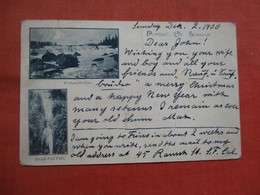 Sunday Dec. 2, 1900
Dear John!
Wishing you your wife
and boy and all your
friends and
a merry Christmas
and a happy New Year with
many returns I remain as ever
your old chum Max.
I am going to Frisco in about 2 weeks and
when you write, send the mail to my
old address at 45 S.F. Cal.